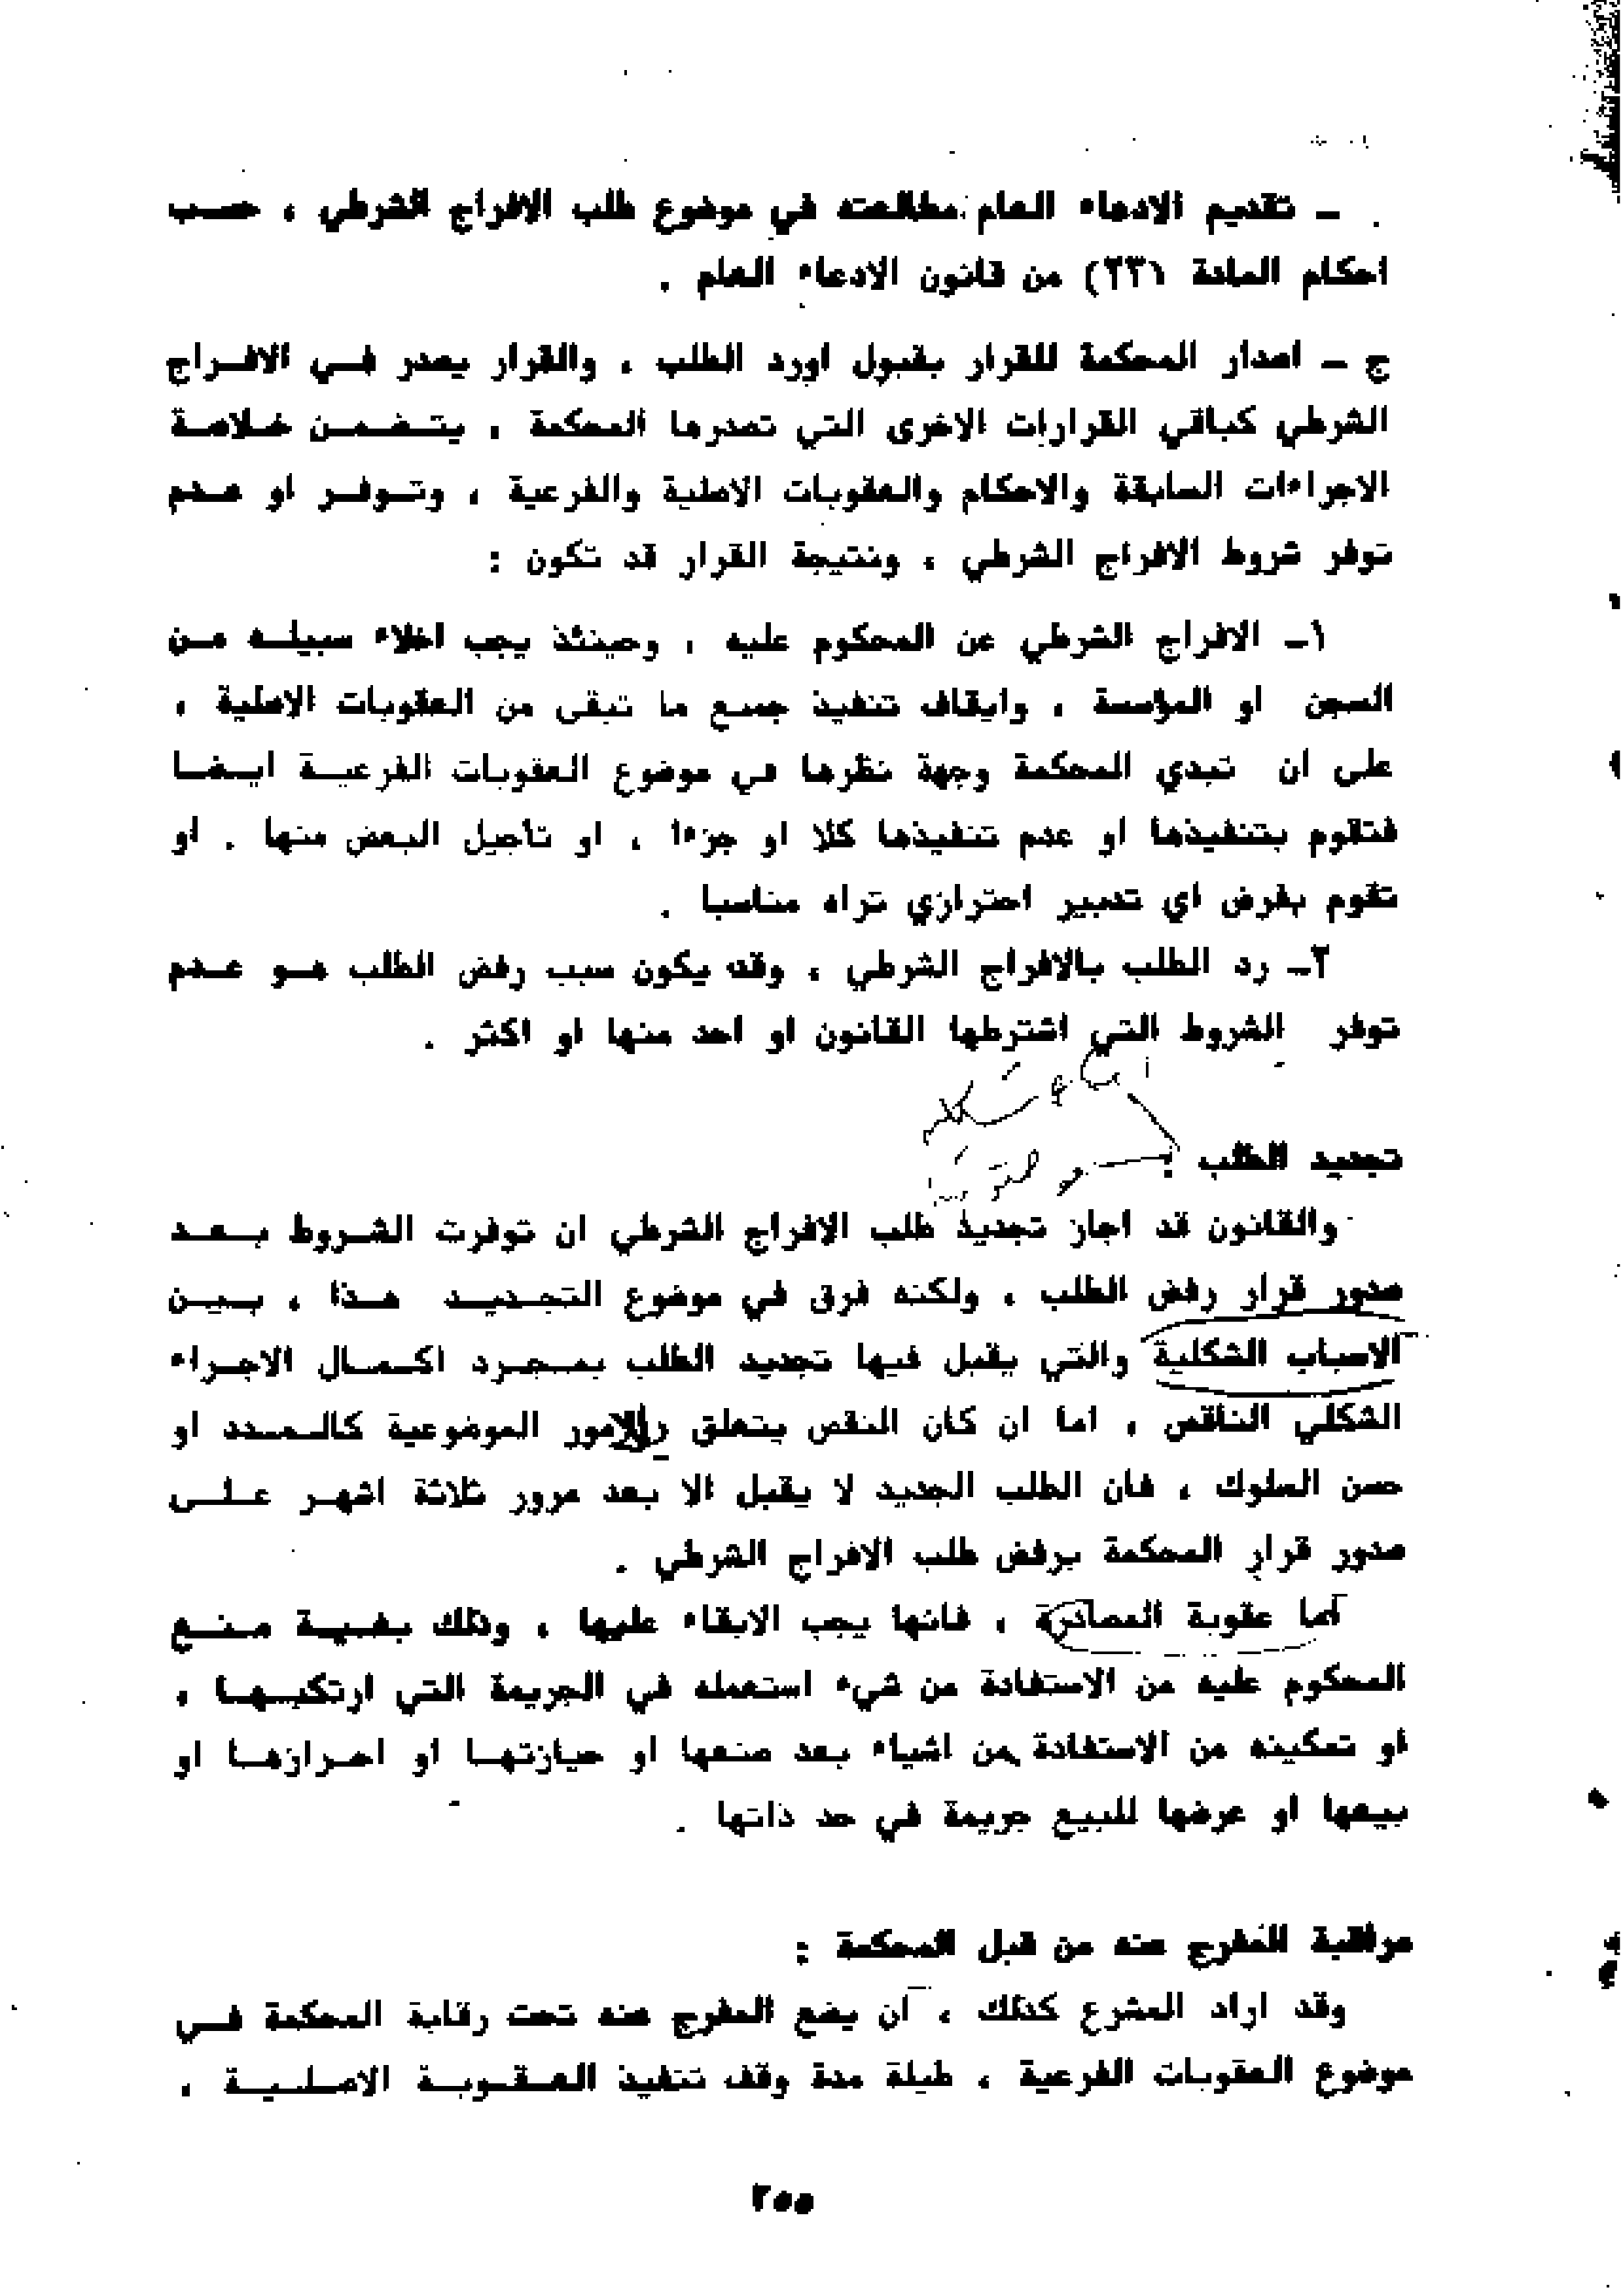 ـ تقديم الادعاء العام مطالعته في موضوع طلب الافراج الشرطي ، حسب
احكام المادة (٢٣١) من قانون الادعاء العام .
ج ـ اصدار المحكمة للقرار بقبول اورد الطلب ، والقرار يصدر في الافراج
الشرطي كباقي القرارات الاخرى التي تصدرها المحكمة ، يتضمن خلاصة
الاجراءات السابقة والاحكام والعقوبات الاصلية والفرعية ، وتوفر او عدم
توفر شروط الافراج الشرطي ، ونتيجة القرار قد تكون :
١ـ الافراج الشرطي عن المحكوم عليه ، وحينئذ يجب اخلاء سبيله من
السجن او المؤسسة ، وايقاف تنفيذ جميع ما تبقى من العقوبات الاصلية ،
على ان تبدي المحكمة وجهة نظرها في موضوع العقوبات الفرعية ايضا
فتقوم بتنفيذها او عدم تنفيذها كلا او جزءا ، او تأجيل البعض منها . او
تقوم بفرض اي تدبير احترازي تراه مناسبا .
٢ـ رد الطلب بالافراج الشرطي ، وقد يكون سبب رفض الطلب هو عدم
توفر الشروط التي اشترطها القانون او احد منها او اكثر .
تجديد الطلب :
والقانون قد اجاز تجديد طلب الافراج الشرطي ان توفرت الشروط بعد
صدور قرار رفض الطلب ، ولكنه فرق في موضوع التجديد هذا ، بين
الاسباب الشكلية والتي يقبل فيها تجديد الطلب بمجرد اكمال الاجراء
الشكلي الناقص ، اما ان كان النقص يتعلق بالامور الموضوعية كالمدد او
حسن السلوك ، فان الطلب الجديد لا يقبل الا بعد مرور ثلاثة اشهر على
صدور قرار المحكمة برفض طلب الافراج الشرطي .
أما عقوبة المصادرة ، فانها يجب الابقاء عليها ، وذلك بغية منع
المحكوم عليه من الاستفادة من شيء استعمله في الجريمة التي ارتكبها ،
او تمكينه من الاستفادة من اشياء يعد صنعها او حيازتها او احرازها او
بيعها او عرضها للبيع جريمة في حد ذاتها .
مراقبة المفرج عنه من قبل المحكمة :
وقد اراد المشرع كذلك ، ان يضع المفرج عنه تحت رقابة المحكمة في
موضوع العقوبات الفرعية ، طيلة مدة وقف تنفيذ العقوبة الاصلية ،
٢٥٥